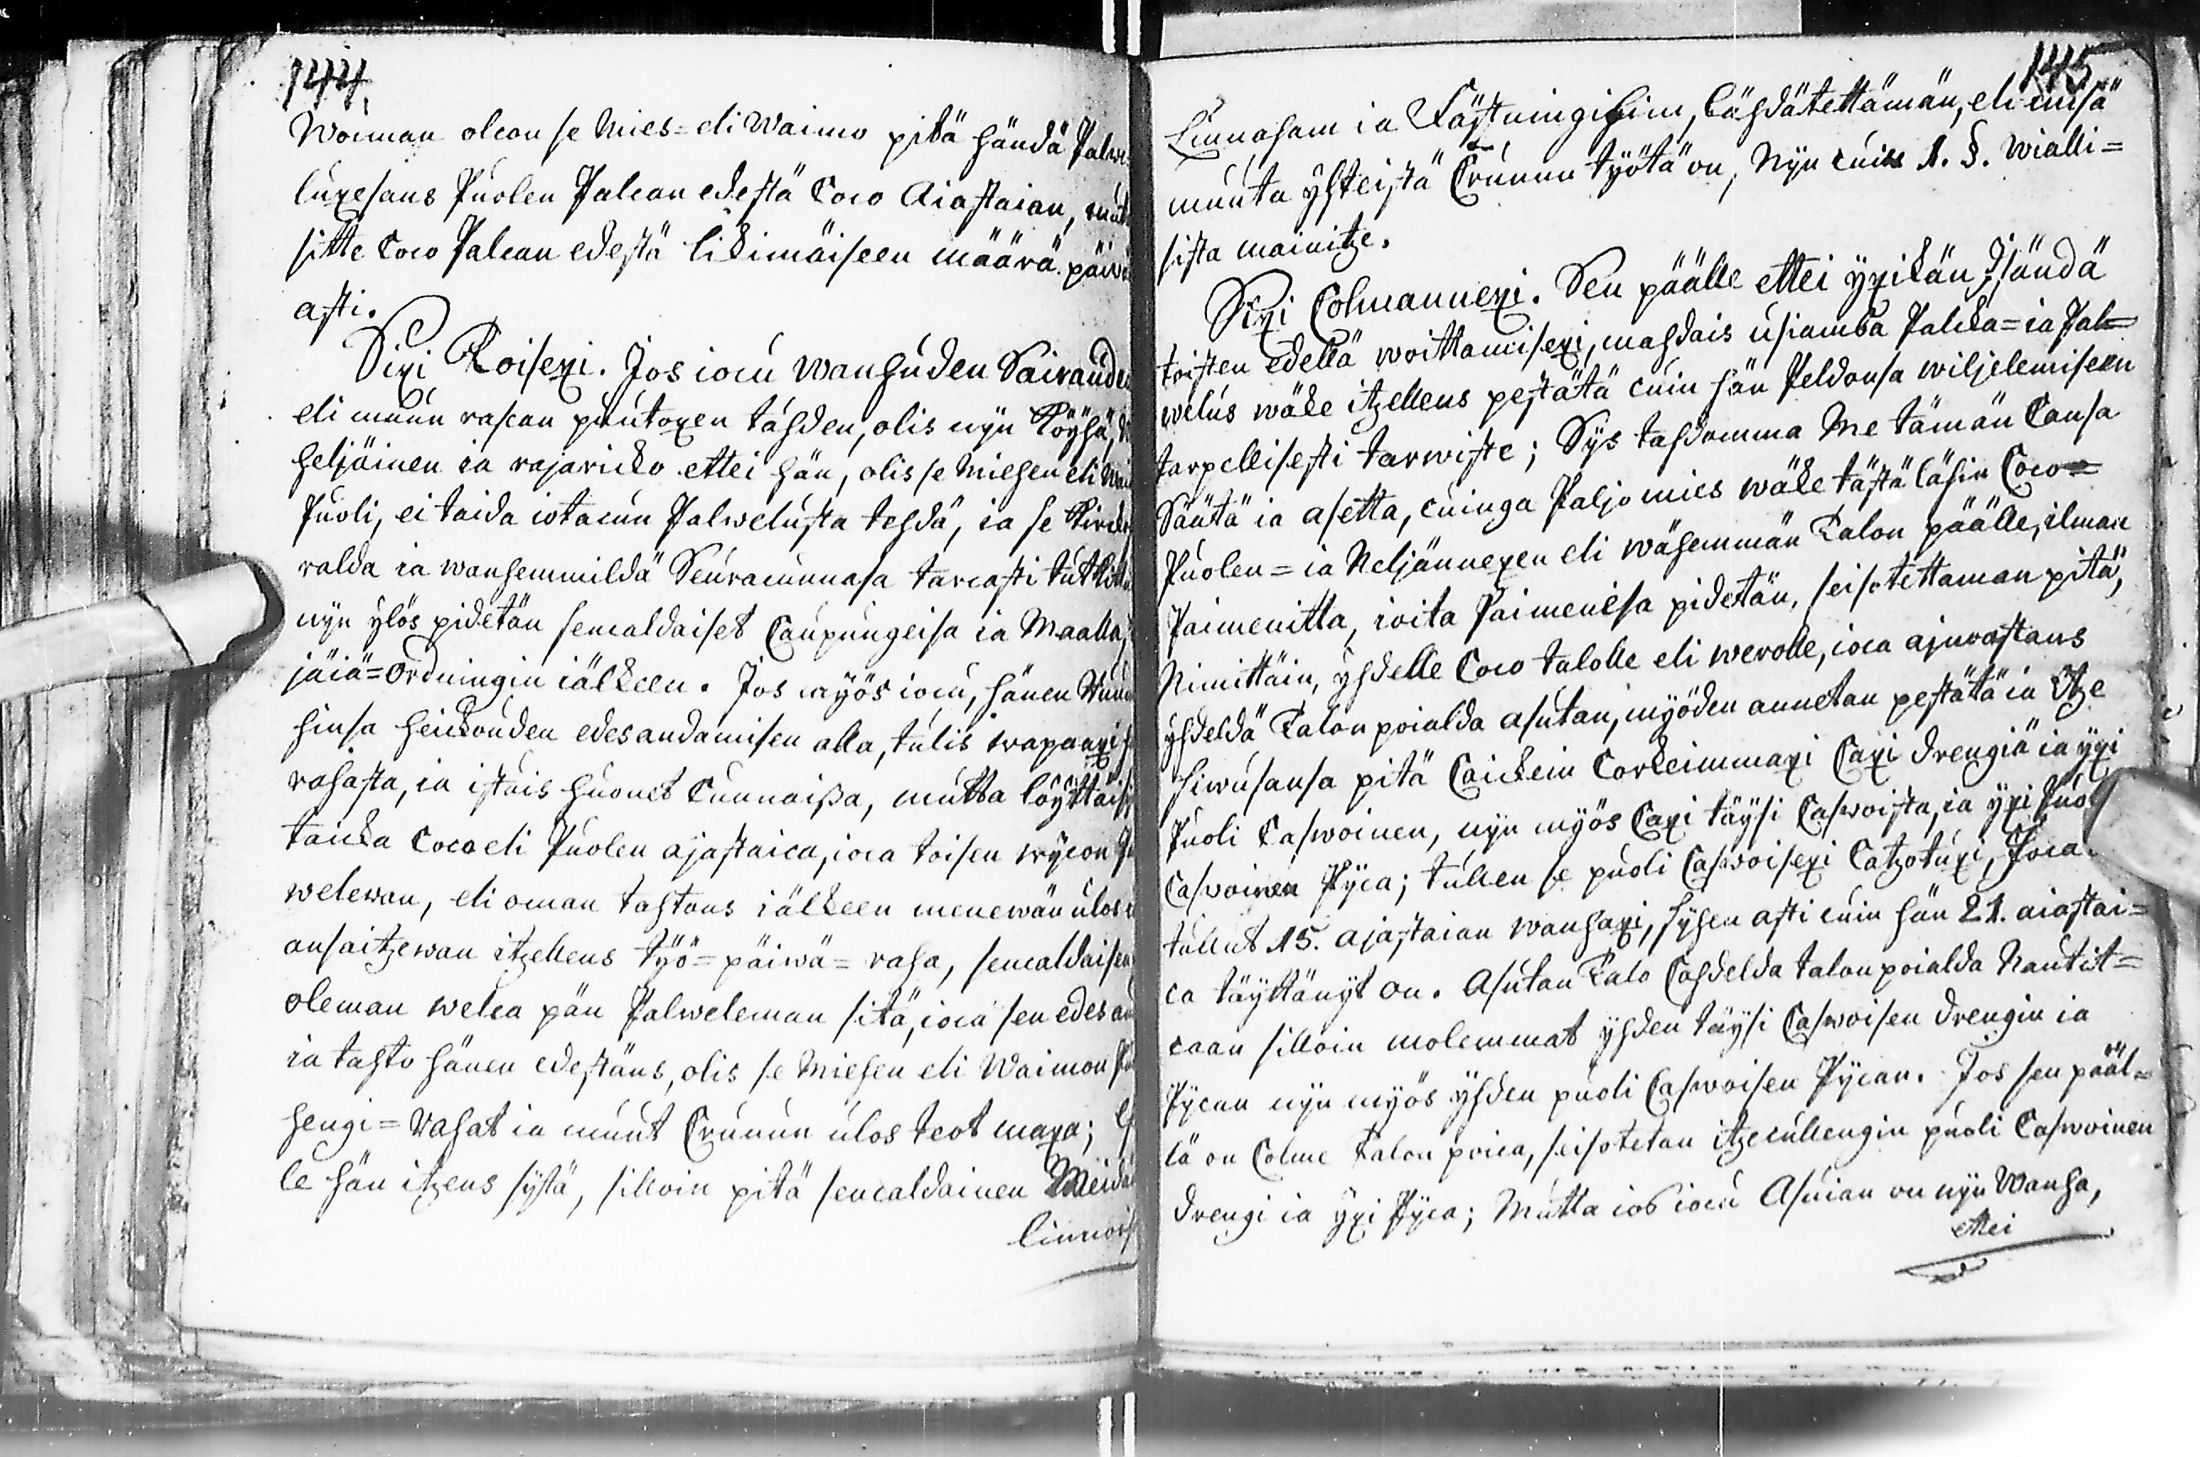 144.
Woiman olcon se Mies= eli Waimo pitä händä Palwe
luxesans Puolen Palcan edestä Coco Aiastaian, mut
sitte Coco Palcan edestä likimäiseen määrä päiwä
asti.
Sixi Toisexi. Jos jocu wanhuden Sairauden
eli muun rascan puutoxen tähden, olis nyn Köyhä,
heljäinen ia rajaricko ettei hän, olis se Miehen eli Wai
Puoli, ei taida iotacun Palwelusta tehdä, ia se Kircko
ralda ia wanhemmilda Seuracunnasa tarcasti tutkittu
nyn ylös pidetän sencaldaiset Caupungeisa ia Maalla,
jäiä=Ordningin iälkeen. Jos myös iocu, hänen Ruu
hinsa heickouden edesandamisen alla, tulis wapaaxi
rahasta, ia istuis huonet Cunnaisa, mutta löyttäis
taicka Coco eli Puolen ajastaica, ioca toisen wuoon Pal
welewan, eli oman tahtons iälkeen menewän ulos
ansaitzewan itzellens työ=päiwä=raha, sencaldaisen
oleman welca pän Palweleman sitä, ioca sen edes and
ia tahto hänen edestäns, olis se Miehen eli Waimon Puo
hengi=Rahat ia muut Crunun ulosteot maxa;
le hän itzens sijtä, silloin pitä sencaldainen Meidän
Linnois
145
Linnaham ia Fästningihim, lähdätettämän, eli cusa
muuta yhteistä Crunun työtä on, Nyn cuin 1. §. Wialli=
sista mainitze.
Sixi Colmannexi. Sen päälle ettei yxikän Isändä
toisten edellä woittamisexi, mahdais usiamba Palcka= ia Pal=
welus wäke itzellens pestätä cuin hän Peldonsa wiljelemiseen
tarpellisesti tarwitze; Sys tahdomma Me tämän Cansa
Säätä ia asetta, cuinga Paljo mies wäke tästä lähin Coco=
Puolen= ia Neljännexen eli wähemmän Talon päälle, ilman
Paimenitta, ioita Paimenesa pidetän, seisotettaman pitä,
Nimittäin, yhdelle Coco talolle eli werolle, ioca ajnoastans
yhdeldä Talonpoialda asutan, myöden annetan pestätä ia itze
hiwusansa pitä Caickein Corkeimmaxi Caxi drengiä ia yxi
Puoli Caswoinen, nyn myös Caxi täysi Caswoista, ia yxi Puo
Caswoinen Pyca; tullen se puoli Caswoisexi Catzotuxi, Joca
tullut 15. ajastaian wanhaxi, syhen asti cuin hän 21. aiastai=
ca täyttänyt on. Asutan Talo Cahdelda talonpoialda Nautit=
caan silloin molemmat yhden täysi Caswoisen drengin ia
Pycan nyn myös yhden puoli Caswoisen Pycan. Jos sen pääl=
lä on Colme Talon poica, seisotetan itzecullengin puoli Caswoinen
drengi ia yxi Pyca; Mutta ios iocu Asuian on nyn Wanha,
ettei